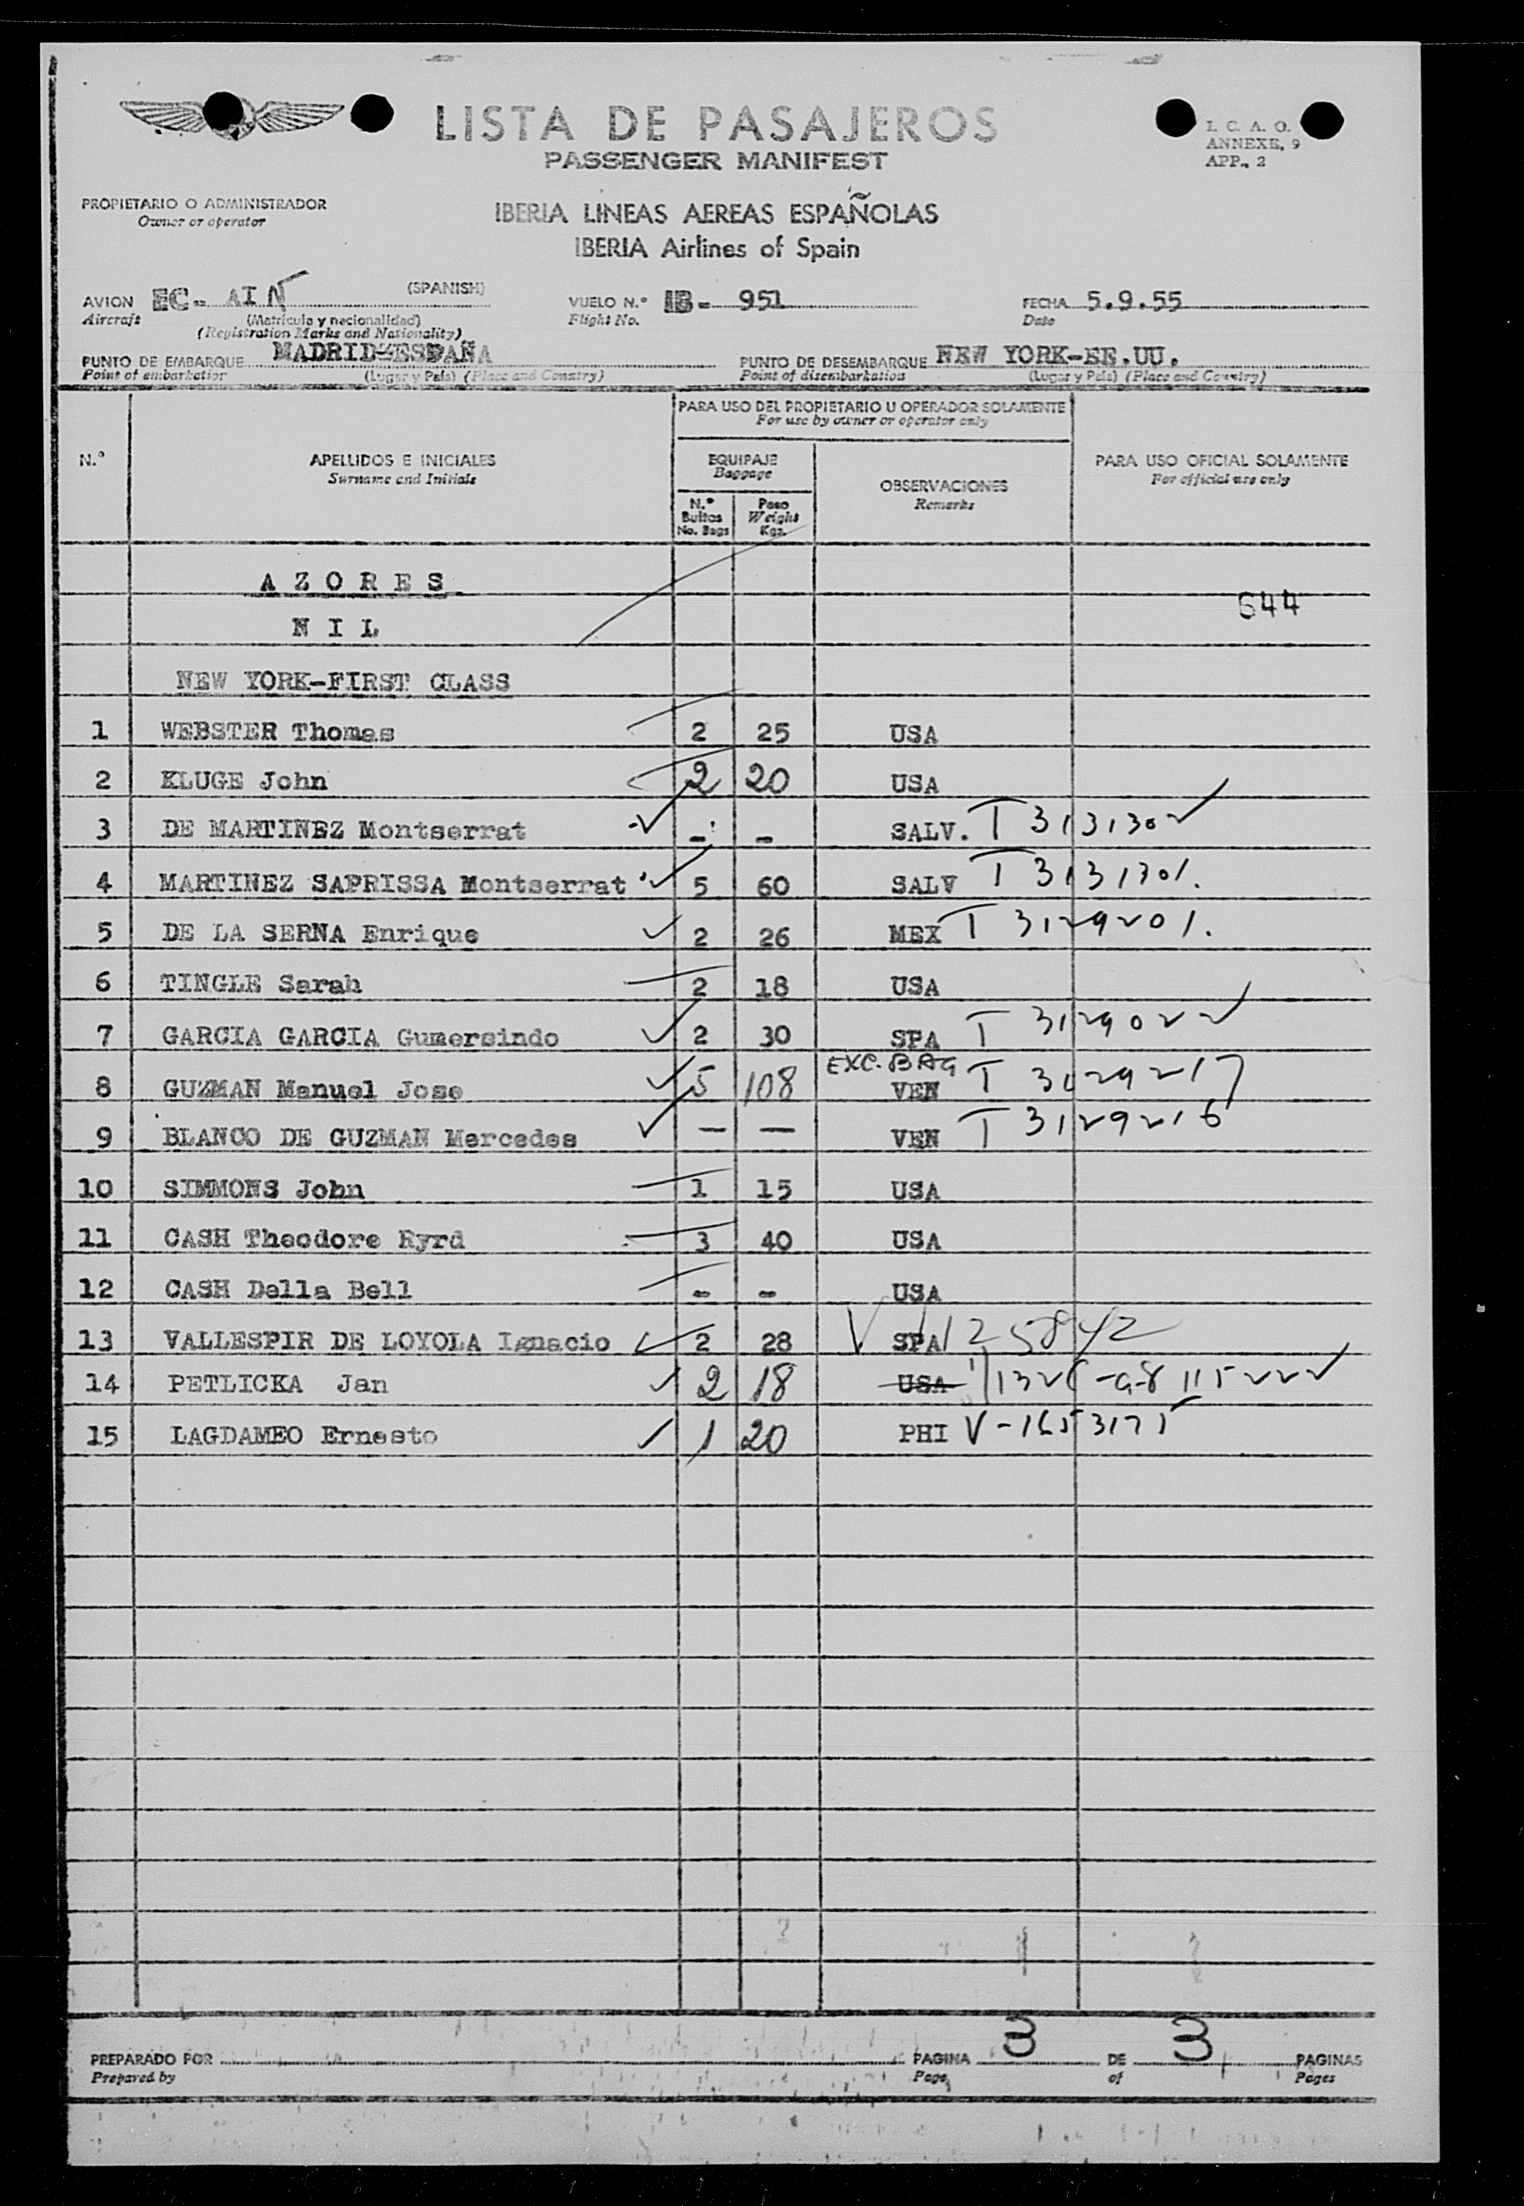 LISTA DE PASAJEROS
PASSENGER MANIFEST
I. C. A. O.
ANNEXE, 9
APP., 2
PROPIETARIO O ADMINISTRADOR
Owner or operator
IBERIA LINEAS AEREAS ESPAÑOLAS
IBERIA Airlines of Spain
AVION EC- AIN (SPANISH) VUELO N.º IB- 951 FECHA 5.9.55
Aircraft (Matrícula y nacionalidad) Flight No. Date
(Registration Marks and Nationality)
PUNTO DE EMBARQUE MADRID-ESPAÑA PUNTO DE DESEMBARQUE NEW YORK-EE.UU.
Point of embarkation (Lugar y País) (Place and Country) Point of disembarkation (Lugar y País) (Place and Country)
PARA USO DEL PROPIETARIO U OPERADOR SOLAMENTE
For use by owner or operator only
N.º APELLIDOS E INICIALES EQUIPAJE PARA USO OFICIAL SOLAMENTE
Surname and Initials Baggage For official use only
OBSERVACIONES
Remarks
N.º Bultos No. Bags Peso Weight Kgs.
AZORES
644
NIL
NEW YORK-FIRST CLASS
1 WEBSTER Thomas 2 25 USA
2 KLUGE John 2 20 USA
3 DE MARTINEZ Montserrat - - SALV. T 3131302
4 MARTINEZ SAPRISSA Montserrat 5 60 SALV T 3131301.
5 DE LA SERNA Enrique 2 26 MEX T 3129201.
6 TINGLE Sarah 2 18 USA
7 GARCIA GARCIA Gumersindo 2 30 SPA T 3129022
8 GUZMAN Manuel Jose 5 108 EXC. BAG VEN T 3129217
9 BLANCO DE GUZMAN Mercedes - - VEN T 3129216
10 SIMMONS John 1 15 USA
11 CASH Theodore Ryrd 3 40 USA
12 CASH Della Bell - - USA
13 VALLESPIR DE LOYOLA Ignacio 2 28 SPA
14 PETLICKA Jan 2 18 USA
15 LAGDAMEO Ernesto 1 20 PHI
PREPARADO POR PAGINA 3 DE 3 PAGINAS
Prepared by Page of Pages